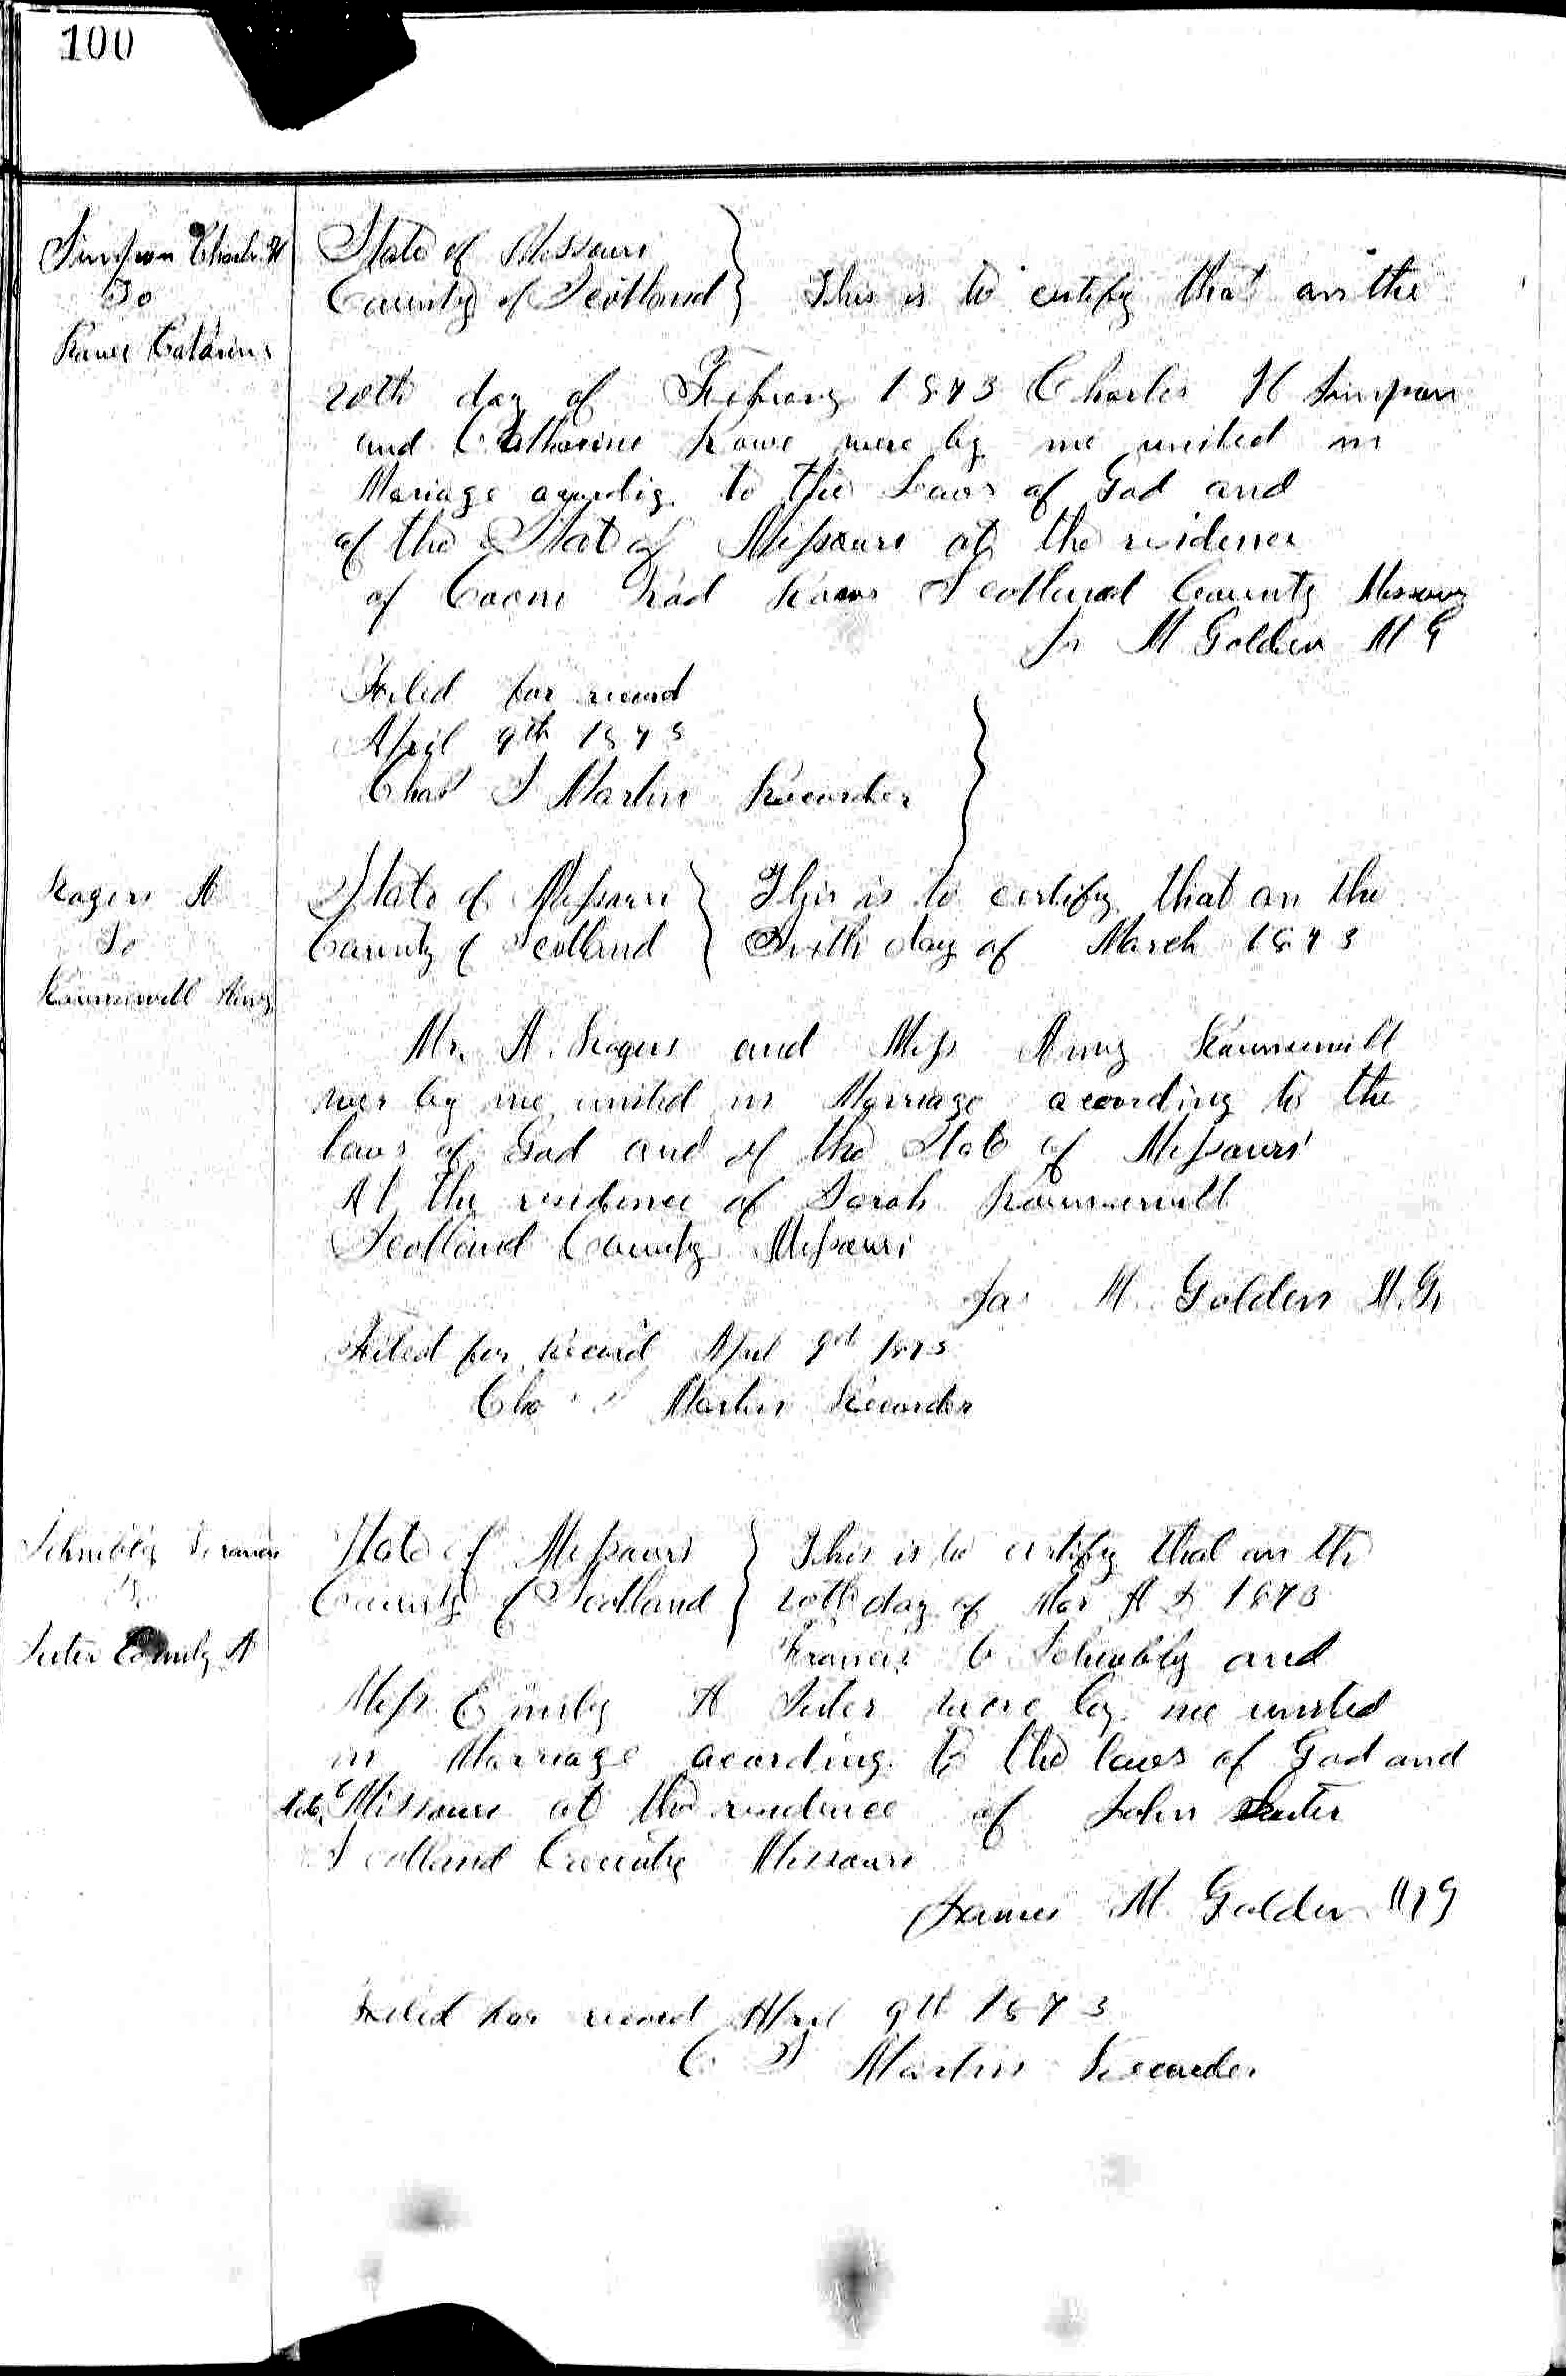 100
Simpson Charls H
To
Rowe Catarine
State of Missouri
County of Scotland } This is to certify that on the
20th day of Februery 1873 Charles H Simpson
and Catharine Rowe were by me united in
Mariage acording to the Laws of God and
of the State of Missouri at the residence
of Scotland County Missouri
Js M Golden M G
Filed for record
April 9th 1873
Chas S Martin Recorder
Rogers A
To
Rounsevell Amy
State of Missouri } This is to certify that on the
County of Scotland } Sixth day of March 1873
Mr. A. Rogers and Miss Amy Rounsevill
wer by me united in Marriage acording to the
laws of God and of the State of Missouri
At the residence of Sarah Rounsevill
Scotland County Missouri
Jas M. Golden M.G.
Filed for Record April 9th 1873
Chas S Martin Recorder
Schnibly Francis
To
Suter Emily A
State of Missouri } This is to certify that on the
County of Scotland } 20th day of Mar A D 1873
Francis C Schnibly and
Miss Emily A Suter were by me united
in Marriage acording to the laws of God and
Missouri at the residence of John Suter
Scotland County Missouri
James M. Golden M G
Filed for record April 9th 1873
C S Martin Recorder